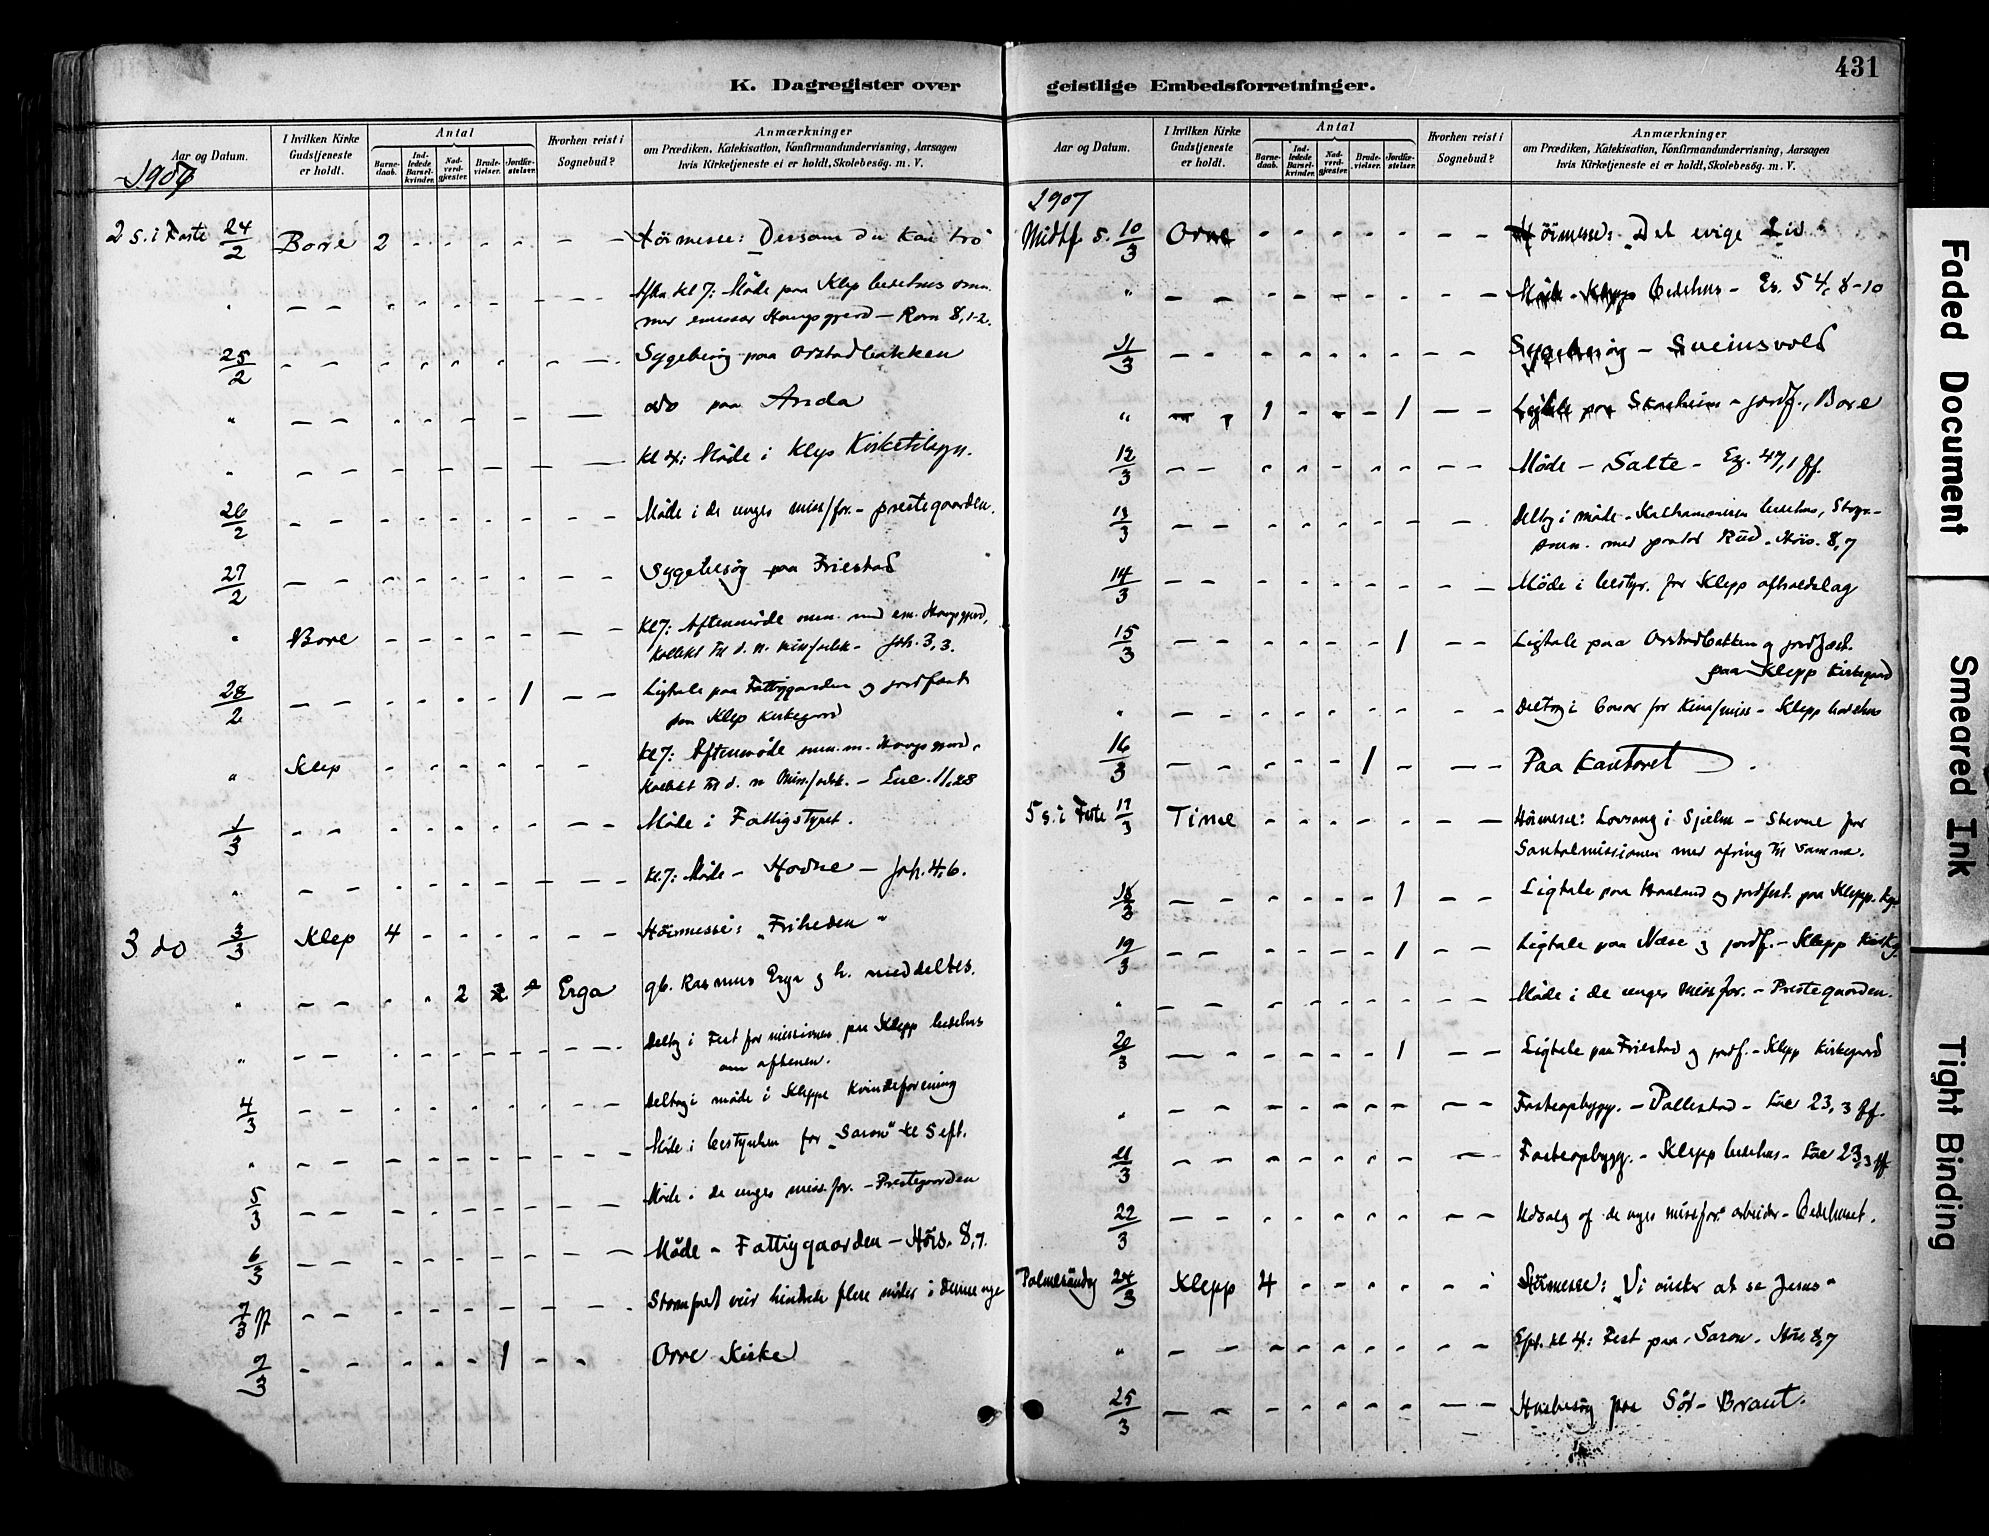 K. Dagregister over geistlige Embedsforretninger.
431
Aar og Datum.
I hvilken Kirke Gudstjeneste er holdt.
Antal
Barnedaab.
Indledede Barselkvinder.
Nadverdgjæster.
Brudevielser.
Jordfæstelser.
Hvorhen reist i Sognebud?
Anmærkninger
om Prædiken, Katekisation, Konfirmandundervisning, Aarsagen
hvis Kirketjeneste ei er holdt, Skolebesøg. m. V.
2 s. i Faste 24/2 Bore 2 - - - - - - Höimesse: "Dersom du kan tro"
" - - - - - - - - - Aften kl 7: Møde paa Klep bedehus
- Rom 8,1-2.
25/2 - - - - - - - - - Sygebesög paa Orstadbakken
" - - - - - - - - - do paa Anda
" - - - - - - - - - kl 4: Møde i Klep
26/2 - - - - - - - - - Møde i de unges missfor. - prestegaarden.
27/2 - - - - - - - - - Sygebesög paa Friestad
" Bore - - - - - - - kl 7: Aftenmöde
kollekt til d. n. - Joh. 3,3.
28/2 - - - - - - 1 - - Ligtale paa Fattiggaarden og jordfæst
paa Klep kirkegaard
" Klep - - - - - - - kl 7: Aftenmöde
kollekt til d. n. - Luc. 11,28
1/3 - - - - - - - - - Møde i Fattigstyret.
" - - - - - - - - - kl. 7: Møde - Hodne - Joh. 4,6.
3 do 3/3 Klep 4 - - - - - - Höimesse: "Friheden"
" - - - - 2 Erga gb. Rasmus Erga og h. meddeltes.
" - - - - - - - - - Deltog i Fest for missionen paa Klepp bedehus
om aftenen.
4/3 - - - - - - - - - Deltog i møde i Kleppe Kvindeforening
" - - - - - - - - - Møde i bestyrelsen for "Saron" kl 5 eft.
5/3 - - - - - - - - - Møde i de unges miss.for. - Prestegaarden
6/3 - - - - - - - - - Møde - Fattiggaarden - Höis. 8,7.
7/3 ff - - - - - - - - - veir hindrede flere möder i denne uge
9/3 - - - - - 1 - - Orre Kirke
Aar og Datum.
I hvilken Kirke Gudstjeneste er holdt.
Antal
Barnedaab.
Indledede Barselkvinder.
Nadverdgjæster.
Brudevielser.
Jordfæstelser.
Hvorhen reist i Sognebud?
Anmærkninger
om Prædiken, Katekisation, Konfirmandundervisning, Aarsagen
hvis Kirketjeneste ei er holdt, Skolebesøg. m. V.
1907
Midtf s. 10/3 Orre - - - - - - - Höimesse: "Det evige Liv"
" - - - - - - - - - Møde - Klepp Bedehus - Es. 54, 8-10
11/3 - - - - - - - - - Sygebesög - Sveinsvold
" - - 1 - - - 1 - - Ligtale paa - jordf., Bore
12/3 - - - - - - - - - Møde - Salte - Ez. 47,1 ff.
13/3 - - - - - - - - - Deltog i møde - bedehus,
med Rüd. Höis. 8,7
14/3 - - - - - - - - - Møde i bestyr. for Klepp afholdslag
15/3 - - - - - - 1 - - Ligtale paa Orstadbakken og jordfæst.
paa Klepp Kirkegaard
" - - - - - - - - - Deltog i Basar for Kina/miss - Klepp bedehus
16/3 - - - - - 1 - - - Paa Kontoret
5 s. i Faste 17/3 Time - - - - - - - Höimesse: Lovsang i Sjælen - Stevne for
Santalmissionen med ofring til samme.
18/3 - - - - - - 1 - - Ligtale paa Braaland og jordfest. paa Klepp. kgd
19/3 - - - - - - 1 - - Ligtale paa Næse og jordf. - Klepp Kirkg.
" - - - - - - - - - Møde i de unges missfor. - Prestegaarden.
20/3 - - - - - - 1 - - Ligtale paa Friestad og jordf. - Klepp Kirkegaard
" - - - - - - - - - Fasteopbygg. - Pollestad - Luc 23, 3 ff.
21/3 - - - - - - - - - Fasteopbygg. - Klepp bedehus - Luc 23,3 ff
22/3 - - - - - - - - - Udsalg af de unges missfor. arbeider - Bedehuset.
Palmesöndag 24/3 Klepp 4 - - - - - - Höimesse: "Vi önsker at se Jesus"
" - - - - - - - - - Eft. kl 4: Fest paa Saron. Höis 8,7
25/3 - - - - - - - - - Husbesög paa Sör-Braut.
Faded Document
Smeared Ink
Tight Binding